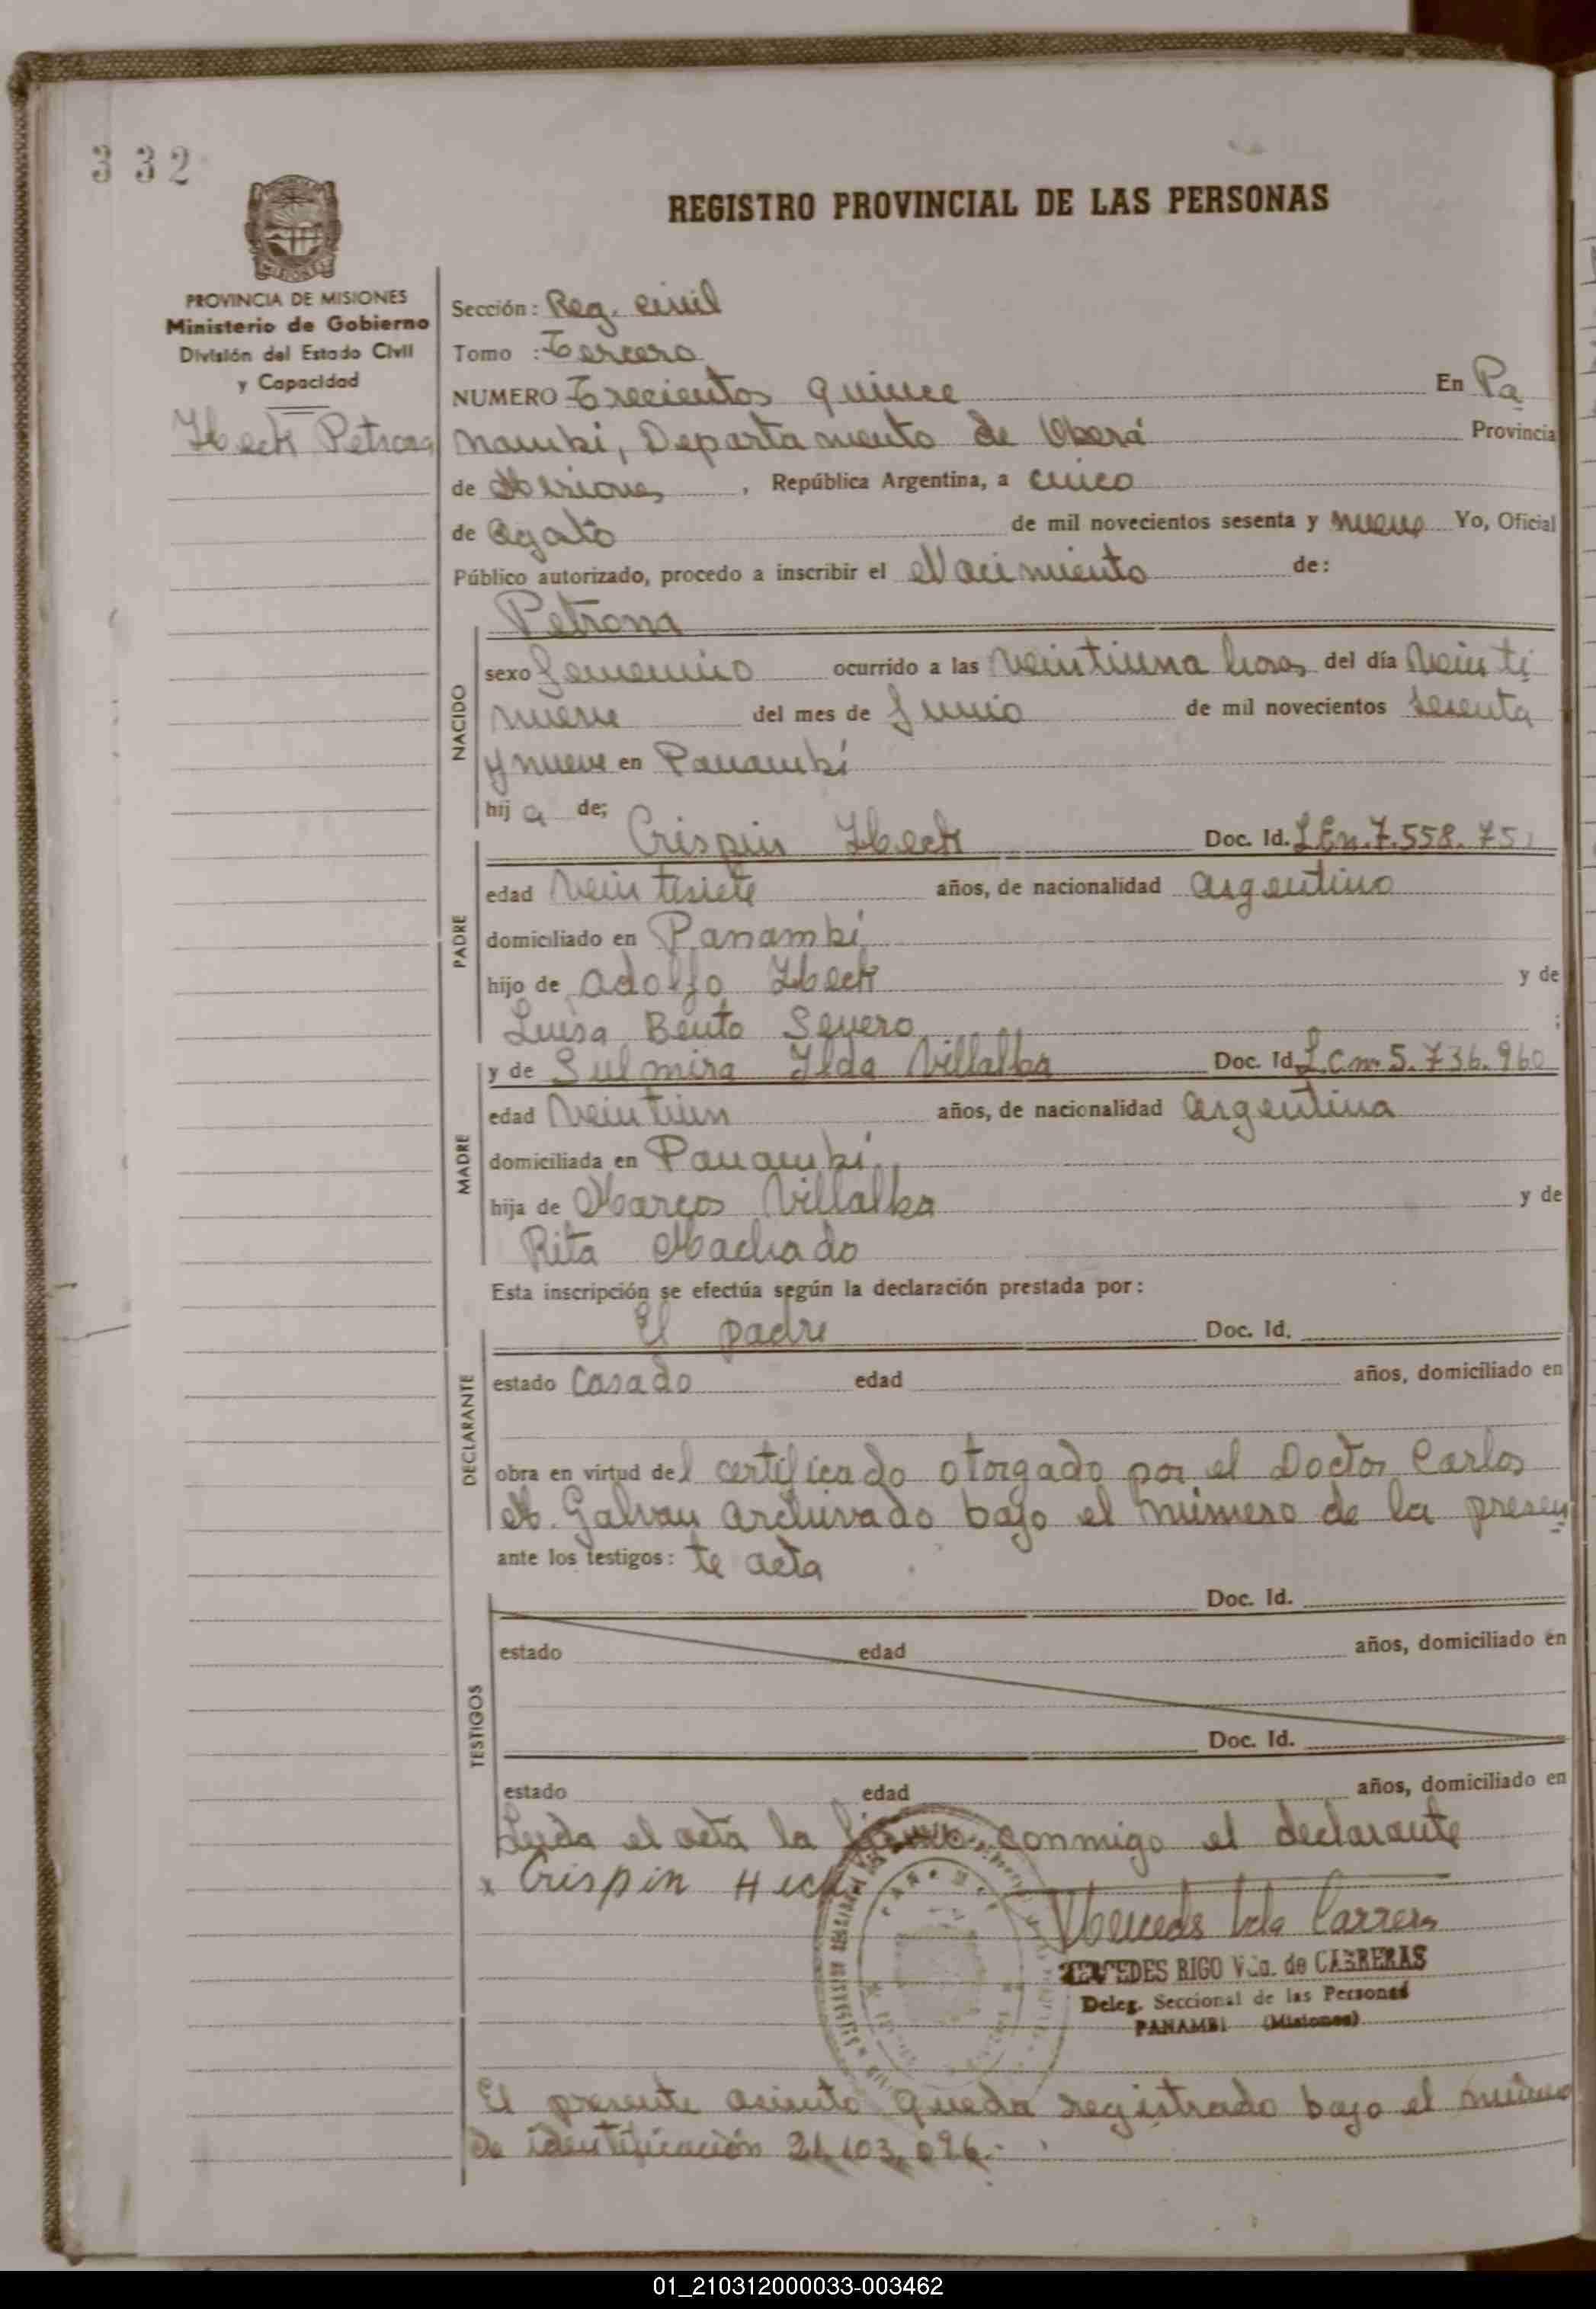 332
REGISTRO PROVINCIAL DE LAS PERSONAS
PROVINCIA DE MISIONES
Ministerio de Gobierno
División del Estado Civil
y Capacidad
Heck Petrona
Sección: Reg. civil
Tomo : Tercero
NUMERO Trecientos quince En Pa
nambi, Departamento de Oberá Provincia
de Misiones, República Argentina, a cinco
de Agoto de mil novecientos sesenta y nueve Yo, Oficial
Público autorizado, procedo a inscribir el Nacimiento de:
Petrona
NACIDO
sexo femenino ocurrido a las veintiuna horas del día veinti
nueve del mes de Junio de mil novecientos sesenta
y nueve en Panambí
hija de;
Crispin Heck Doc. Id. L.En. 7.558.75
PADRE
edad veintisiete años, de nacionalidad argentino
domiciliado en Panambí
hijo de Adolfo Heck y de
Luisa Bento Severo ;
y de Sulmira Ilda Villalba Doc. Id. L.C.nº 5.736.960
MADRE
edad veintiun años, de nacionalidad argentina
domiciliada en Panambí
hija de Marcos Villalba y de
Rita Machado
Esta inscripción se efectúa según la declaración prestada por:
El padre Doc. Id.
DECLARANTE
estado casado edad años, domiciliado en
obra en virtud del certificado otorgado por el Doctor Carlos
M. Galvan archivado bajo el número de la presen
ante los testigos: te acta
TESTIGOS
Doc. Id.
estado edad años, domiciliado en
Doc. Id.
estado edad años, domiciliado en
Leida el acta la conmigo el declarante
x Crispin Heck
MERCEDES RIGO Vda. de CABRERAS
Deleg. Seccional de las Personas
PANAMBI (Misiones)
El presente asiento queda registrado bajo el número
de identificación 21.103.096.-
01_210312000033-003462